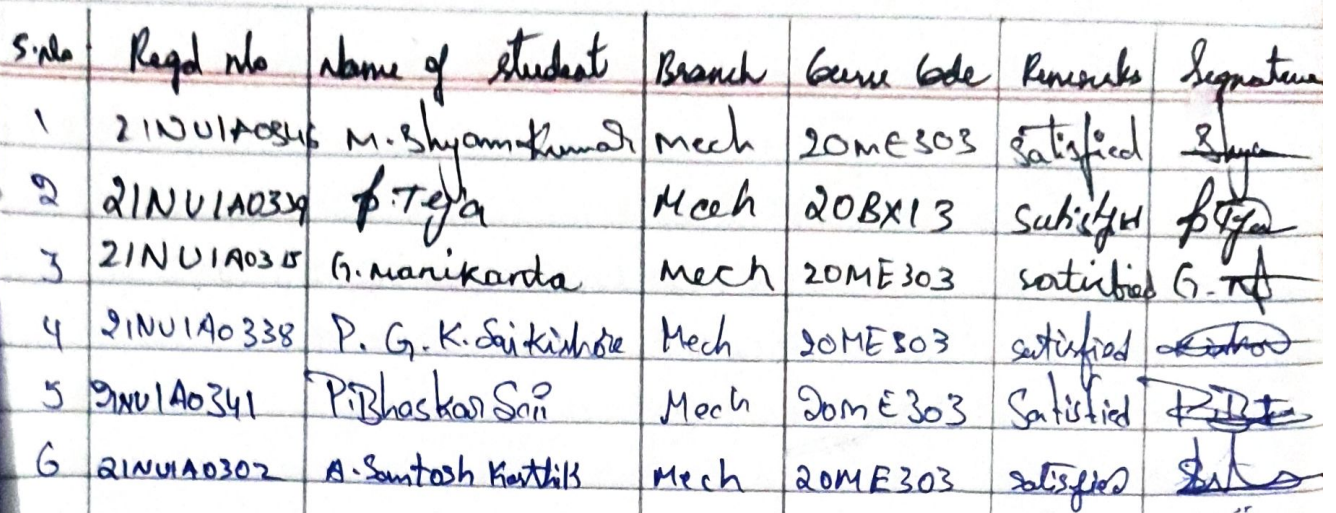 S.No Regd No Name of student Branch Course Code Remarks Signature
1 21NU1A0346 M. Shyam Kumar Mech 20ME303 satisfied Shya
2 21NU1A0339 P. Teja Mech 20BX13 P Teja
3 21NU1A0315 G. Manikanta Mech 20ME303 G.
4 21NU1A0338 P. G. K. Sai Kishore Mech 20ME303 satisfied
5 21NU1A0341 P. Bhaskar Sai Mech 20mE303 Satisfied
6 21NU1A0302 A. Santosh Karthik Mech 20ME303 satisfied